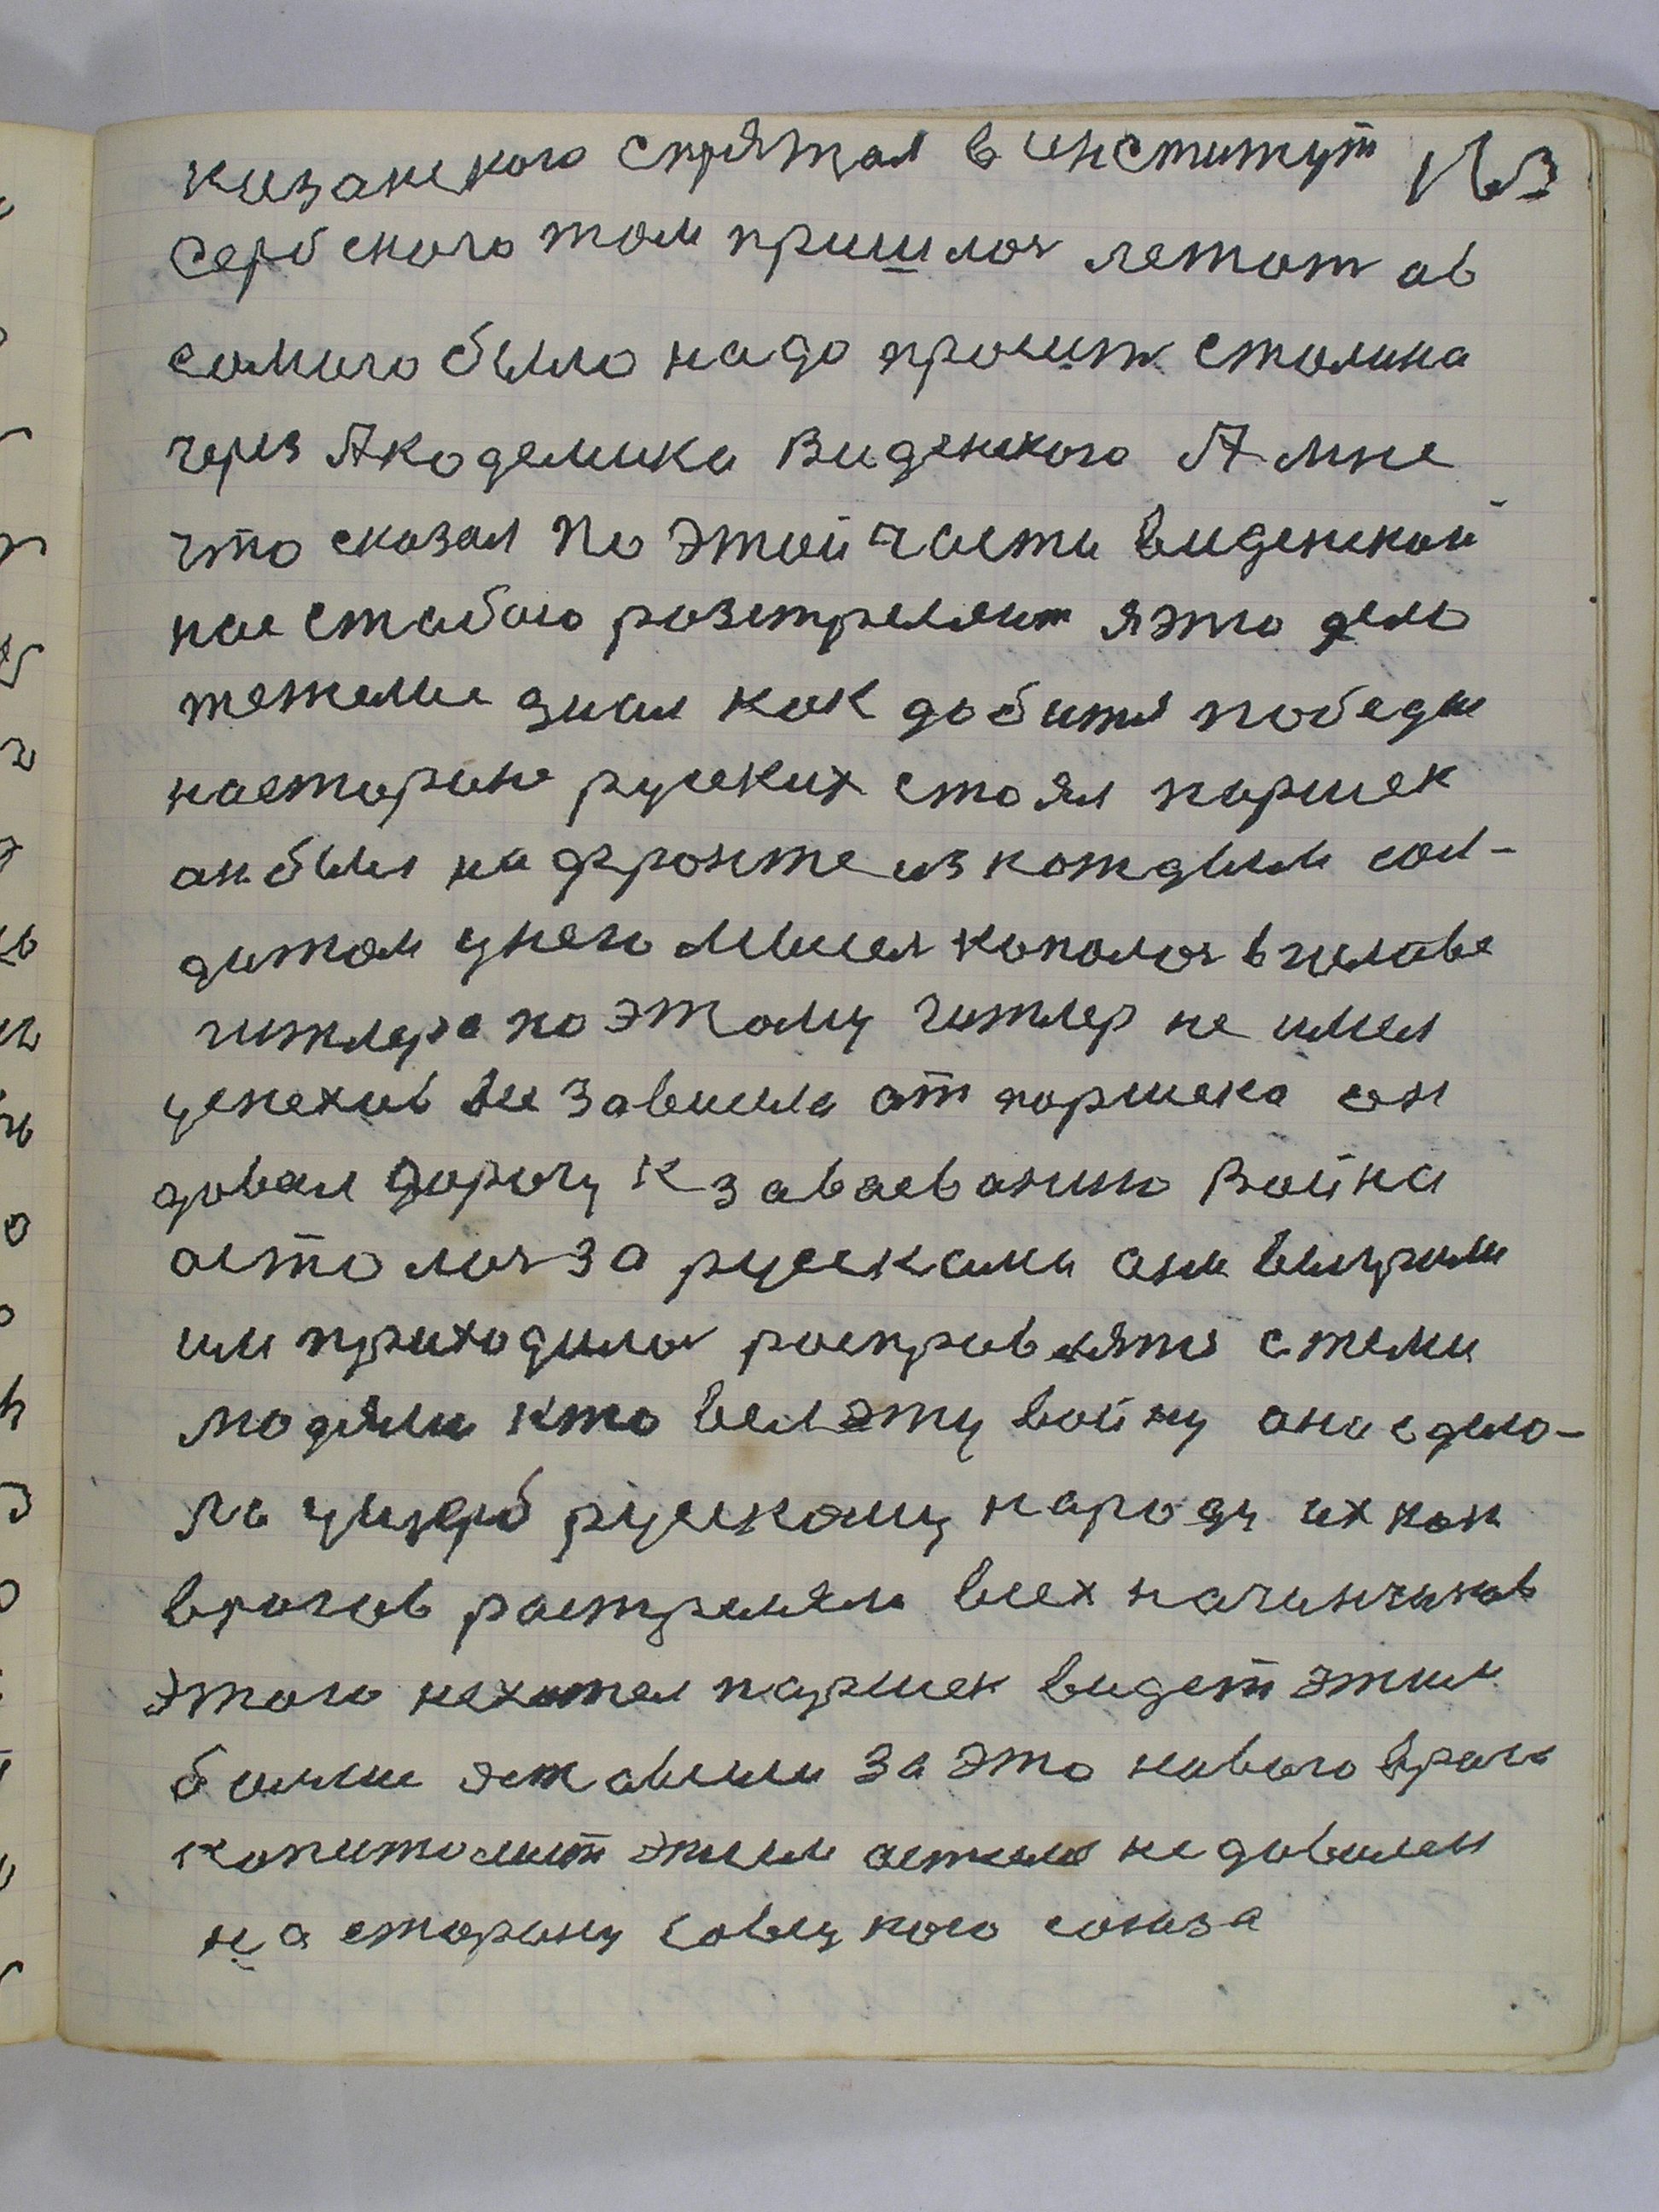 казанского спрятал в институт
сербского там пришлоя летат ав
самаго было надо прасить сталина
через Академика Виденского А мне
что сказал по этой части виденский
нас стабою разстреляют я это дело
тежелые знал как добится победы
настаране руских стоял паршек
он был на фронте из кождым сол-
датом унего мысел капалоя вгалаве
гитлера по этаму гитлер не имел
успехив все зависила от паршека он
довал дорогу к завоеванию Война
астолоя за русками они выиграли
им приходилоя росправлятя стеми
людями кто вел эту войну она сдело-
ла ущерб рускаму народу их как
врагов растреляли всех начинчиков
этого нехотел паршек видет этим
больше за это нового врага
капиталист этим недавилен
на старану совецкого союза